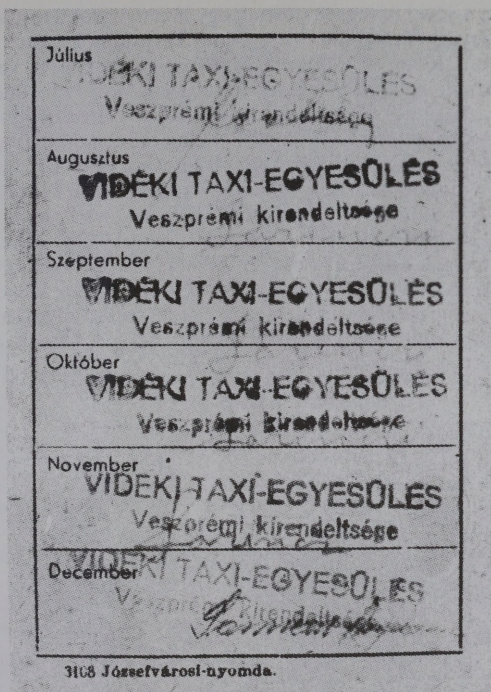 Július
VIDÉKI TAXI-EGYESÜLÉS
Veszprémi kirendeltsége
Augusztus
VIDÉKI TAXI-EGYESÜLÉS
Veszprémi kirendeltsége
Szeptember
VIDÉKI TAXI-EGYESÜLÉS
Veszprémi kirendeltsége
Október
VIDÉKI TAXI-EGYESÜLÉS
Veszprémi kirendeltsége
November
VIDÉKI TAXI-EGYESÜLÉS
Veszprémi kirendeltsége
December
VIDÉKI TAXI-EGYESÜLÉS
Veszprémi kirendeltsége
3168 Józsefvárosi-nyomda.